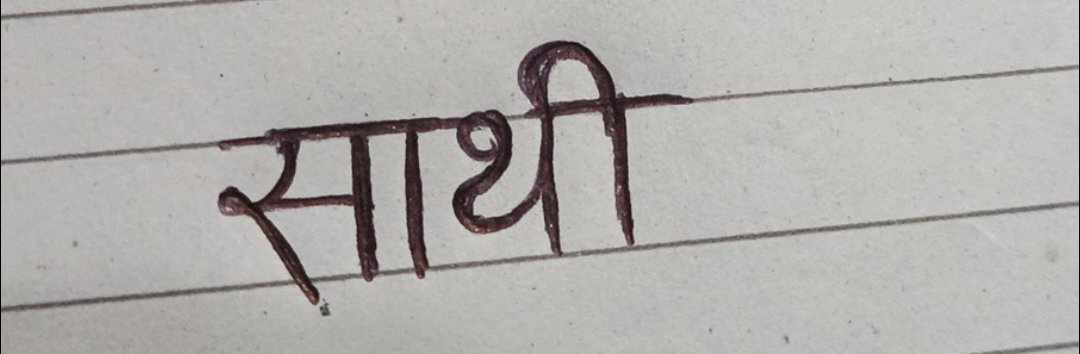 साथी